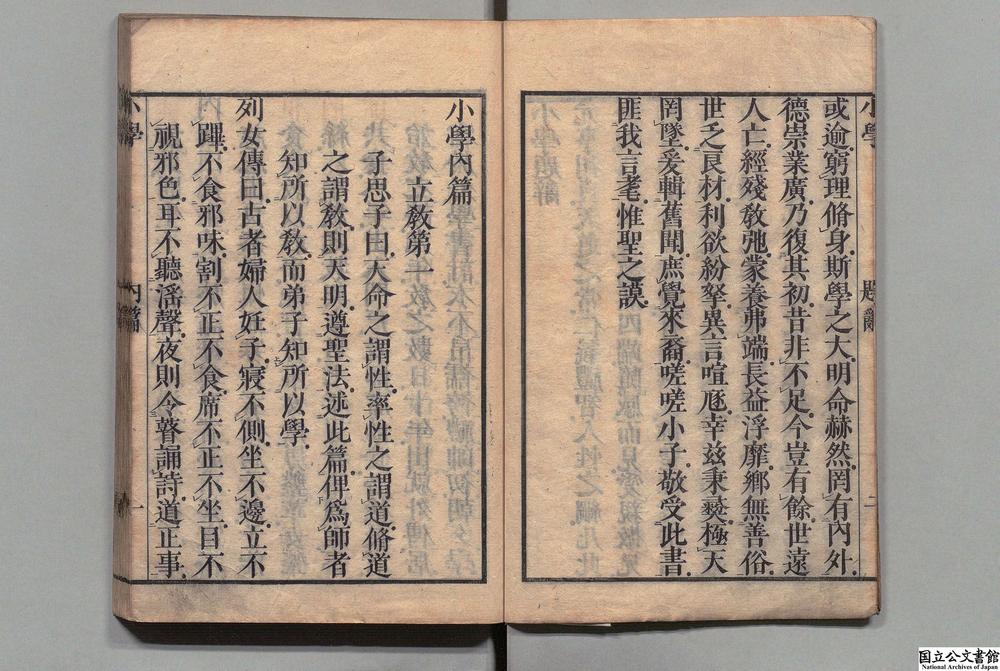 或逾窮理脩身斯學之大明命赫然罔有內外
德崇業廣乃復其初昔非不足今豈有餘世遠
人亡經殘敎弛蒙養弗端長益浮靡鄉無善俗
世乏良材利欲紛拏異言喧豗幸玆秉彛極天
罔墜爰輯舊聞庶覺來裔嗟嗟小子敬受此書
匪我言耄惟聖之謨
小學內篇
立敎第一
子思子曰天命之謂性率性之謂道脩道
之謂敎則天明遵聖法述此篇俾爲師者
知所以敎而弟子知所以學
列女傳曰古者婦人妊子寢不側坐不邊立不
蹕不食邪味割不正不食席不正不坐目不
視邪色耳不聽淫聲夜則令瞽誦詩道正事
国立公文書館
National Archives of Japan